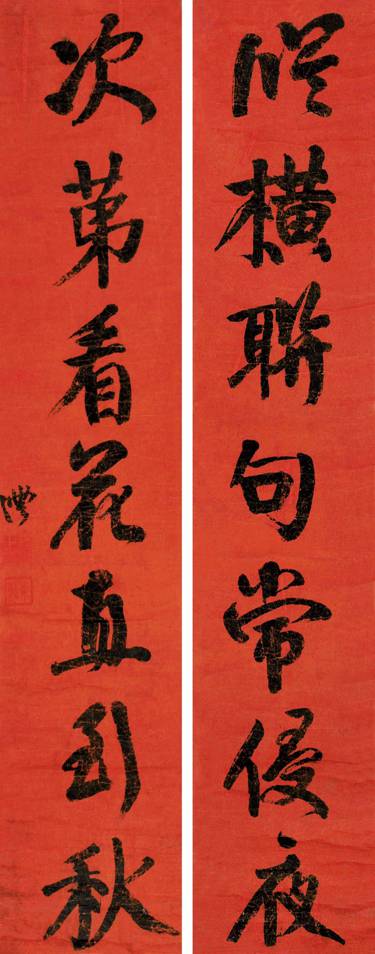 從橫聯句常侵夜
次第看花直到秋
澧